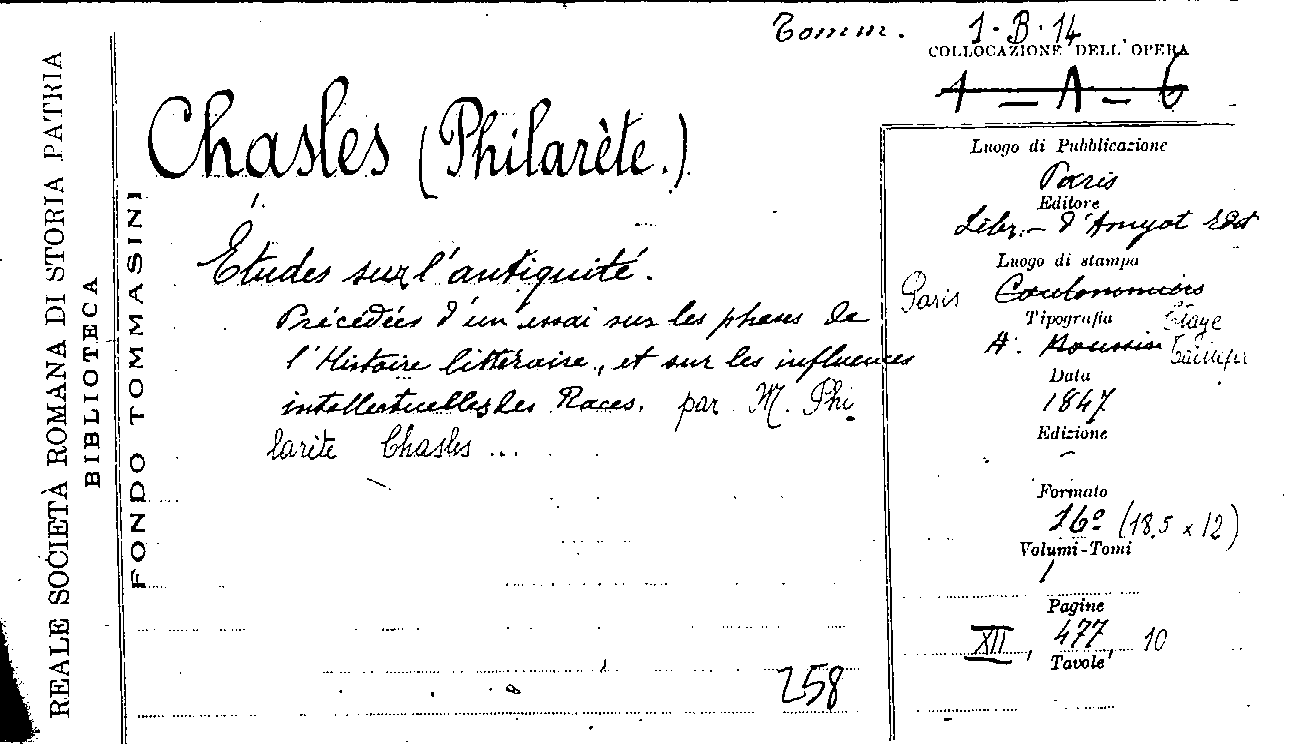 REALE SOCIETÀ ROMANA DI STORIA PATRIA
BIBLIOTECA
FONDO TOMMASINI
Tomm. 1-B-14
COLLOCAZIONE DELL'OPERA
1-A-6
Chasles (Philarète.)
Études sur l'antiquité.
Précédées d'un essai sur les phases de
l'Histoire littéraire, et sur les influences
intellectuelles des Races. par M. Phi
larète Chasles ...
258
Luogo di Pubblicazione
Paris
Editore
Libr. - d'Amyot Edit
Luogo di stampa
Paris Coulommiers
Tipografia
A. Moussin
Data
1847
Edizione
-
Formato
16º (18,5 x 12)
Volumi-Tomi
1
Pagine
XII, 477, 10
Tavole